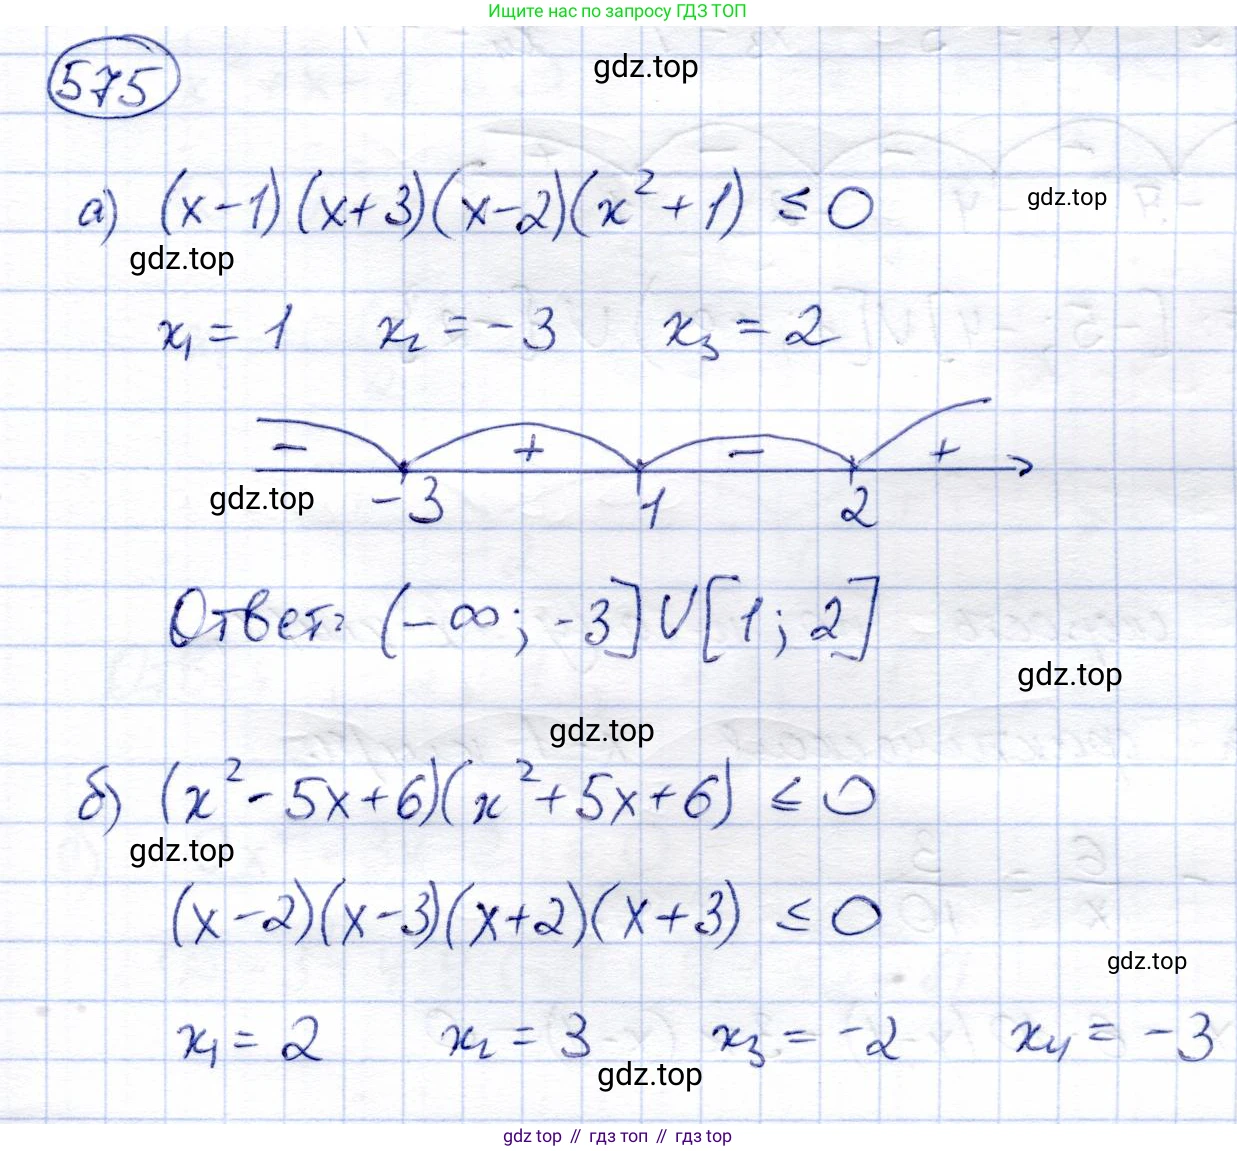 Ищите нас по запросу ГДЗ ТОП
575
gdz.top
а) (x-1)(x+3)(x-2)(x²+1) ≤ 0
gdz.top
gdz.top
x₁ = 1 x₂ = -3 x₃ = 2
- + - +
gdz.top
-3 1 2
Ответ: (-∞; -3] ∪ [1; 2]
gdz.top
gdz.top
б) (x²-5x+6)(x²+5x+6) ≤ 0
gdz.top
(x-2)(x-3)(x+2)(x+3) ≤ 0
gdz.top
x₁ = 2 x₂ = 3 x₃ = -2 x₄ = -3
gdz.top
gdz top // гдз топ // гдз top